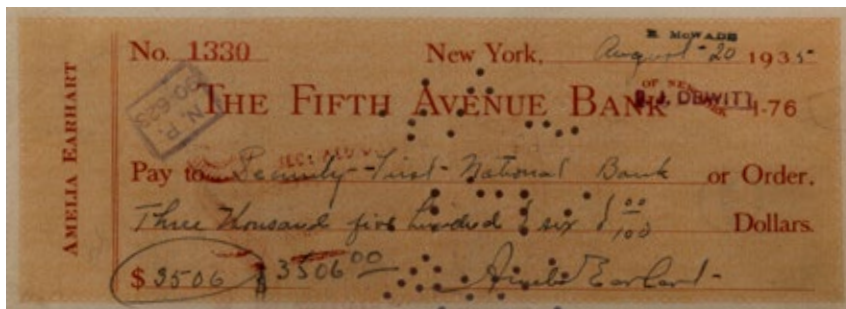 AMELIA EARHART
E. McWADE
No. 1330 New York, August 20 1935
THE FIFTH AVENUE BANK OF NEW YORK 1-76
N. P.
90-623
S. J. DEWITT
Pay to Security-First-National Bank or Order.
Three thousand five hundred & six & 00/100 Dollars.
$ 3506 $ 3506 00 Amelia Earhart